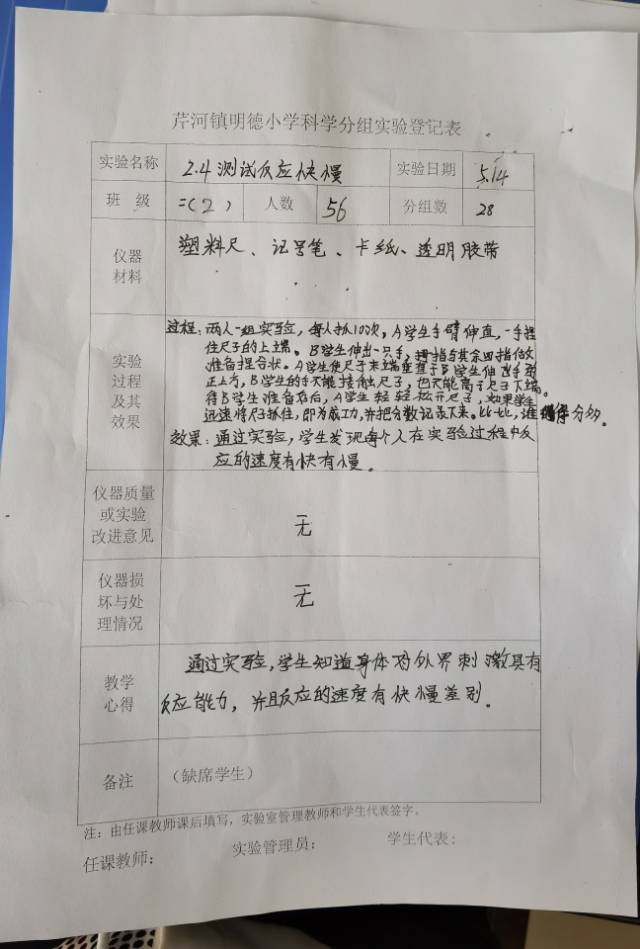 芹河镇明德小学科学分组实验登记表
实验名称 2.4测试反应快慢 实验日期 5.14
班 级 二(2) 人数 56 分组数 28
仪器
材料
塑料尺、记号笔、卡纸、透明胶带
实验
过程
及其
效果
过程:两人一组实验,每人抓10次,A学生手臂伸直,一手捏
住尺子的上端。B学生伸出一只手,拇指与其余四指做
准备捏合状。A学生使尺子末端垂直于B学生伸出手的
正上方,B学生的手不能接触尺子,也不能高于尺子下端。
待B学生准备好后,A学生轻轻松开尺子,如果学生
迅速将尺子抓住,即为成功,并把分数记录下来。比一比,谁得分多。
效果:通过实验,学生发现每个人在实验过程中反
应的速度有快有慢。
仪器质量
或实验
改进意见
无
仪器损
坏与处
理情况
无
教学
心得
通过实验,学生知道身体对外界刺激具有
反应能力,并且反应的速度有快慢差别。
备注 (缺席学生)
注:由任课教师课后填写,实验室管理教师和学生代表签字。
任课教师: 实验管理员: 学生代表: